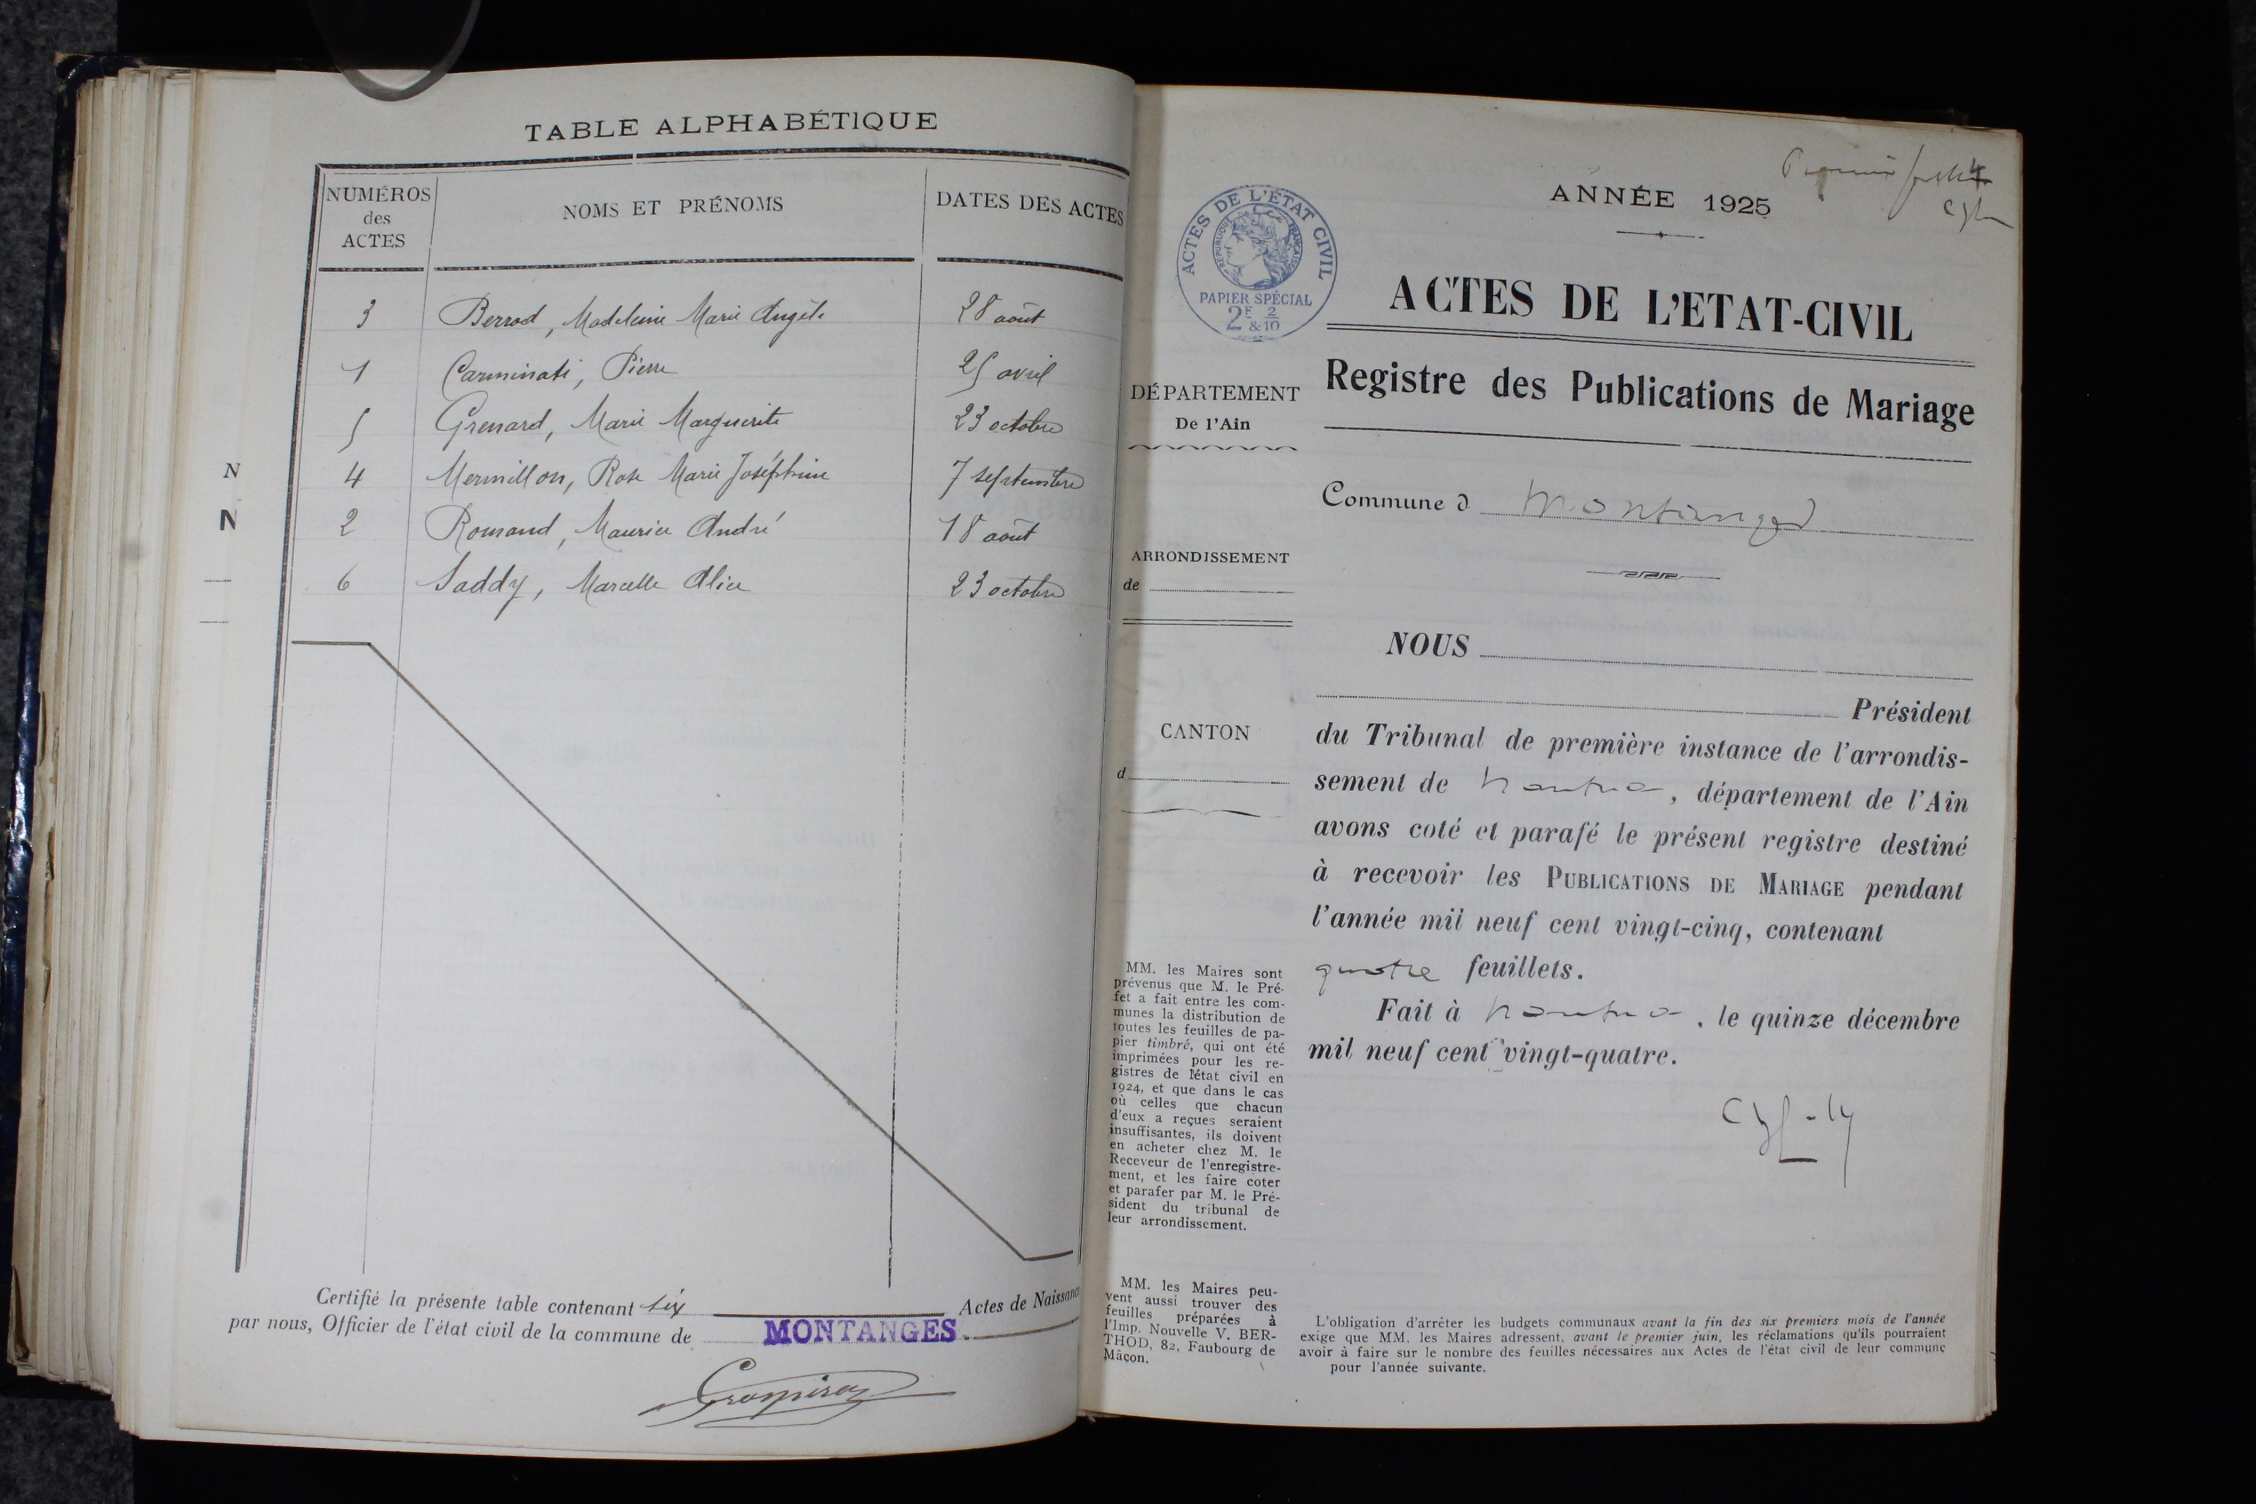 TABLE ALPHABÉTIQUE
NUMÉROS
des
ACTES
NOMS ET PRÉNOMS
DATES DES ACTES
3 Berrod, Madeleine Marie Angèle 28 août
1 Carminati, Pierre 25 avril
5 Grenard, Marie Marguerite 23 octobre
4 Mermillon, Rose Marie Joséphine 7 septembre
2 Rousand, Maurice André 18 août
6 Saddy, Marcelle Alice 23 octobre
Certifié la présente table contenant six Actes de Naissance
par nous, Officier de l'état civil de la commune de MONTANGES
N
N
Premier feuillet
ANNÉE 1925
ACTES DE L'ÉTAT CIVIL
RÉPUBLIQUE FRANÇAISE
PAPIER SPÉCIAL
2F 2
&10
ACTES DE L'ETAT-CIVIL
Registre des Publications de Mariage
DÉPARTEMENT
De l'Ain
Commune d Montanges
ARRONDISSEMENT
de
CANTON
d
NOUS
Président
du Tribunal de première instance de l'arrondis-
sement de Nantua, département de l'Ain
avons coté et parafé le présent registre destiné
à recevoir les PUBLICATIONS DE MARIAGE pendant
l'année mil neuf cent vingt-cinq, contenant
quatre feuillets.
Fait à Nantua, le quinze décembre
mil neuf cent vingt-quatre.
MM. les Maires sont
prévenus que M. le Pré-
fet a fait entre les com-
munes la distribution de
toutes les feuilles de pa-
pier timbré, qui ont été
imprimées pour les re-
gistres de l'état civil en
1924, et que dans le cas
où celles que chacun
d'eux a reçues seraient
insuffisantes, ils doivent
en acheter chez M. le
Receveur de l'enregistre-
ment, et les faire coter
et parafer par M. le Pré-
sident du tribunal de
leur arrondissement.
MM. les Maires peu-
vent aussi trouver des
feuilles préparées à
l'Imp. Nouvelle V. BER-
THOD, 82, Faubourg de
Mâcon.
L'obligation d'arrêter les budgets communaux avant la fin des six premiers mois de l'année
exige que MM. les Maires adressent, avant le premier juin, les réclamations qu'ils pourraient
avoir à faire sur le nombre des feuilles nécessaires aux Actes de l'état civil de leur commune
pour l'année suivante.